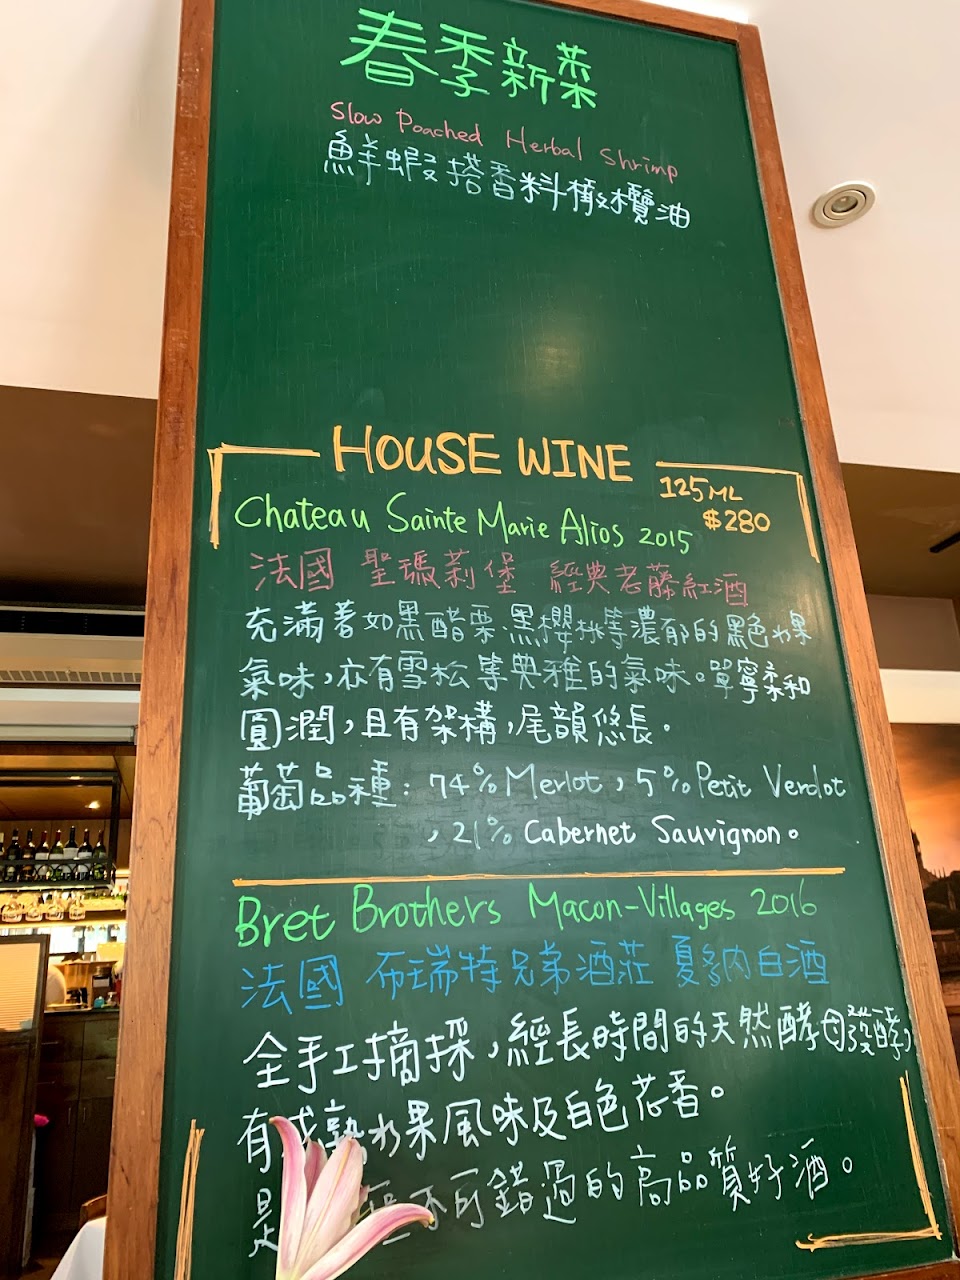 春季新菜
Slow Poached Herbal Shrimp
鮮蝦搭香料橄欖油
HOUSE WINE
125ML
$280
Chateau Sainte Marie Alios 2015
法國 聖瑪莉堡 經典老藤紅酒
充滿著如黑醋栗、黑櫻桃等濃郁的黑色水果
氣味,亦有雪松等典雅的氣味。單寧柔和
圓潤,且有架構,尾韻悠長。
葡萄品種:74%Merlot,5%Petit Verdot
,21% Cabernet Sauvignon。
Bret Brothers Macon-Villages 2016
法國 布瑞特兄弟酒莊 夏多內白酒
全手工摘採,經長時間的天然酵母發酵,
有成熟水果風味及白色花香。
是 不可錯過的高品質好酒。